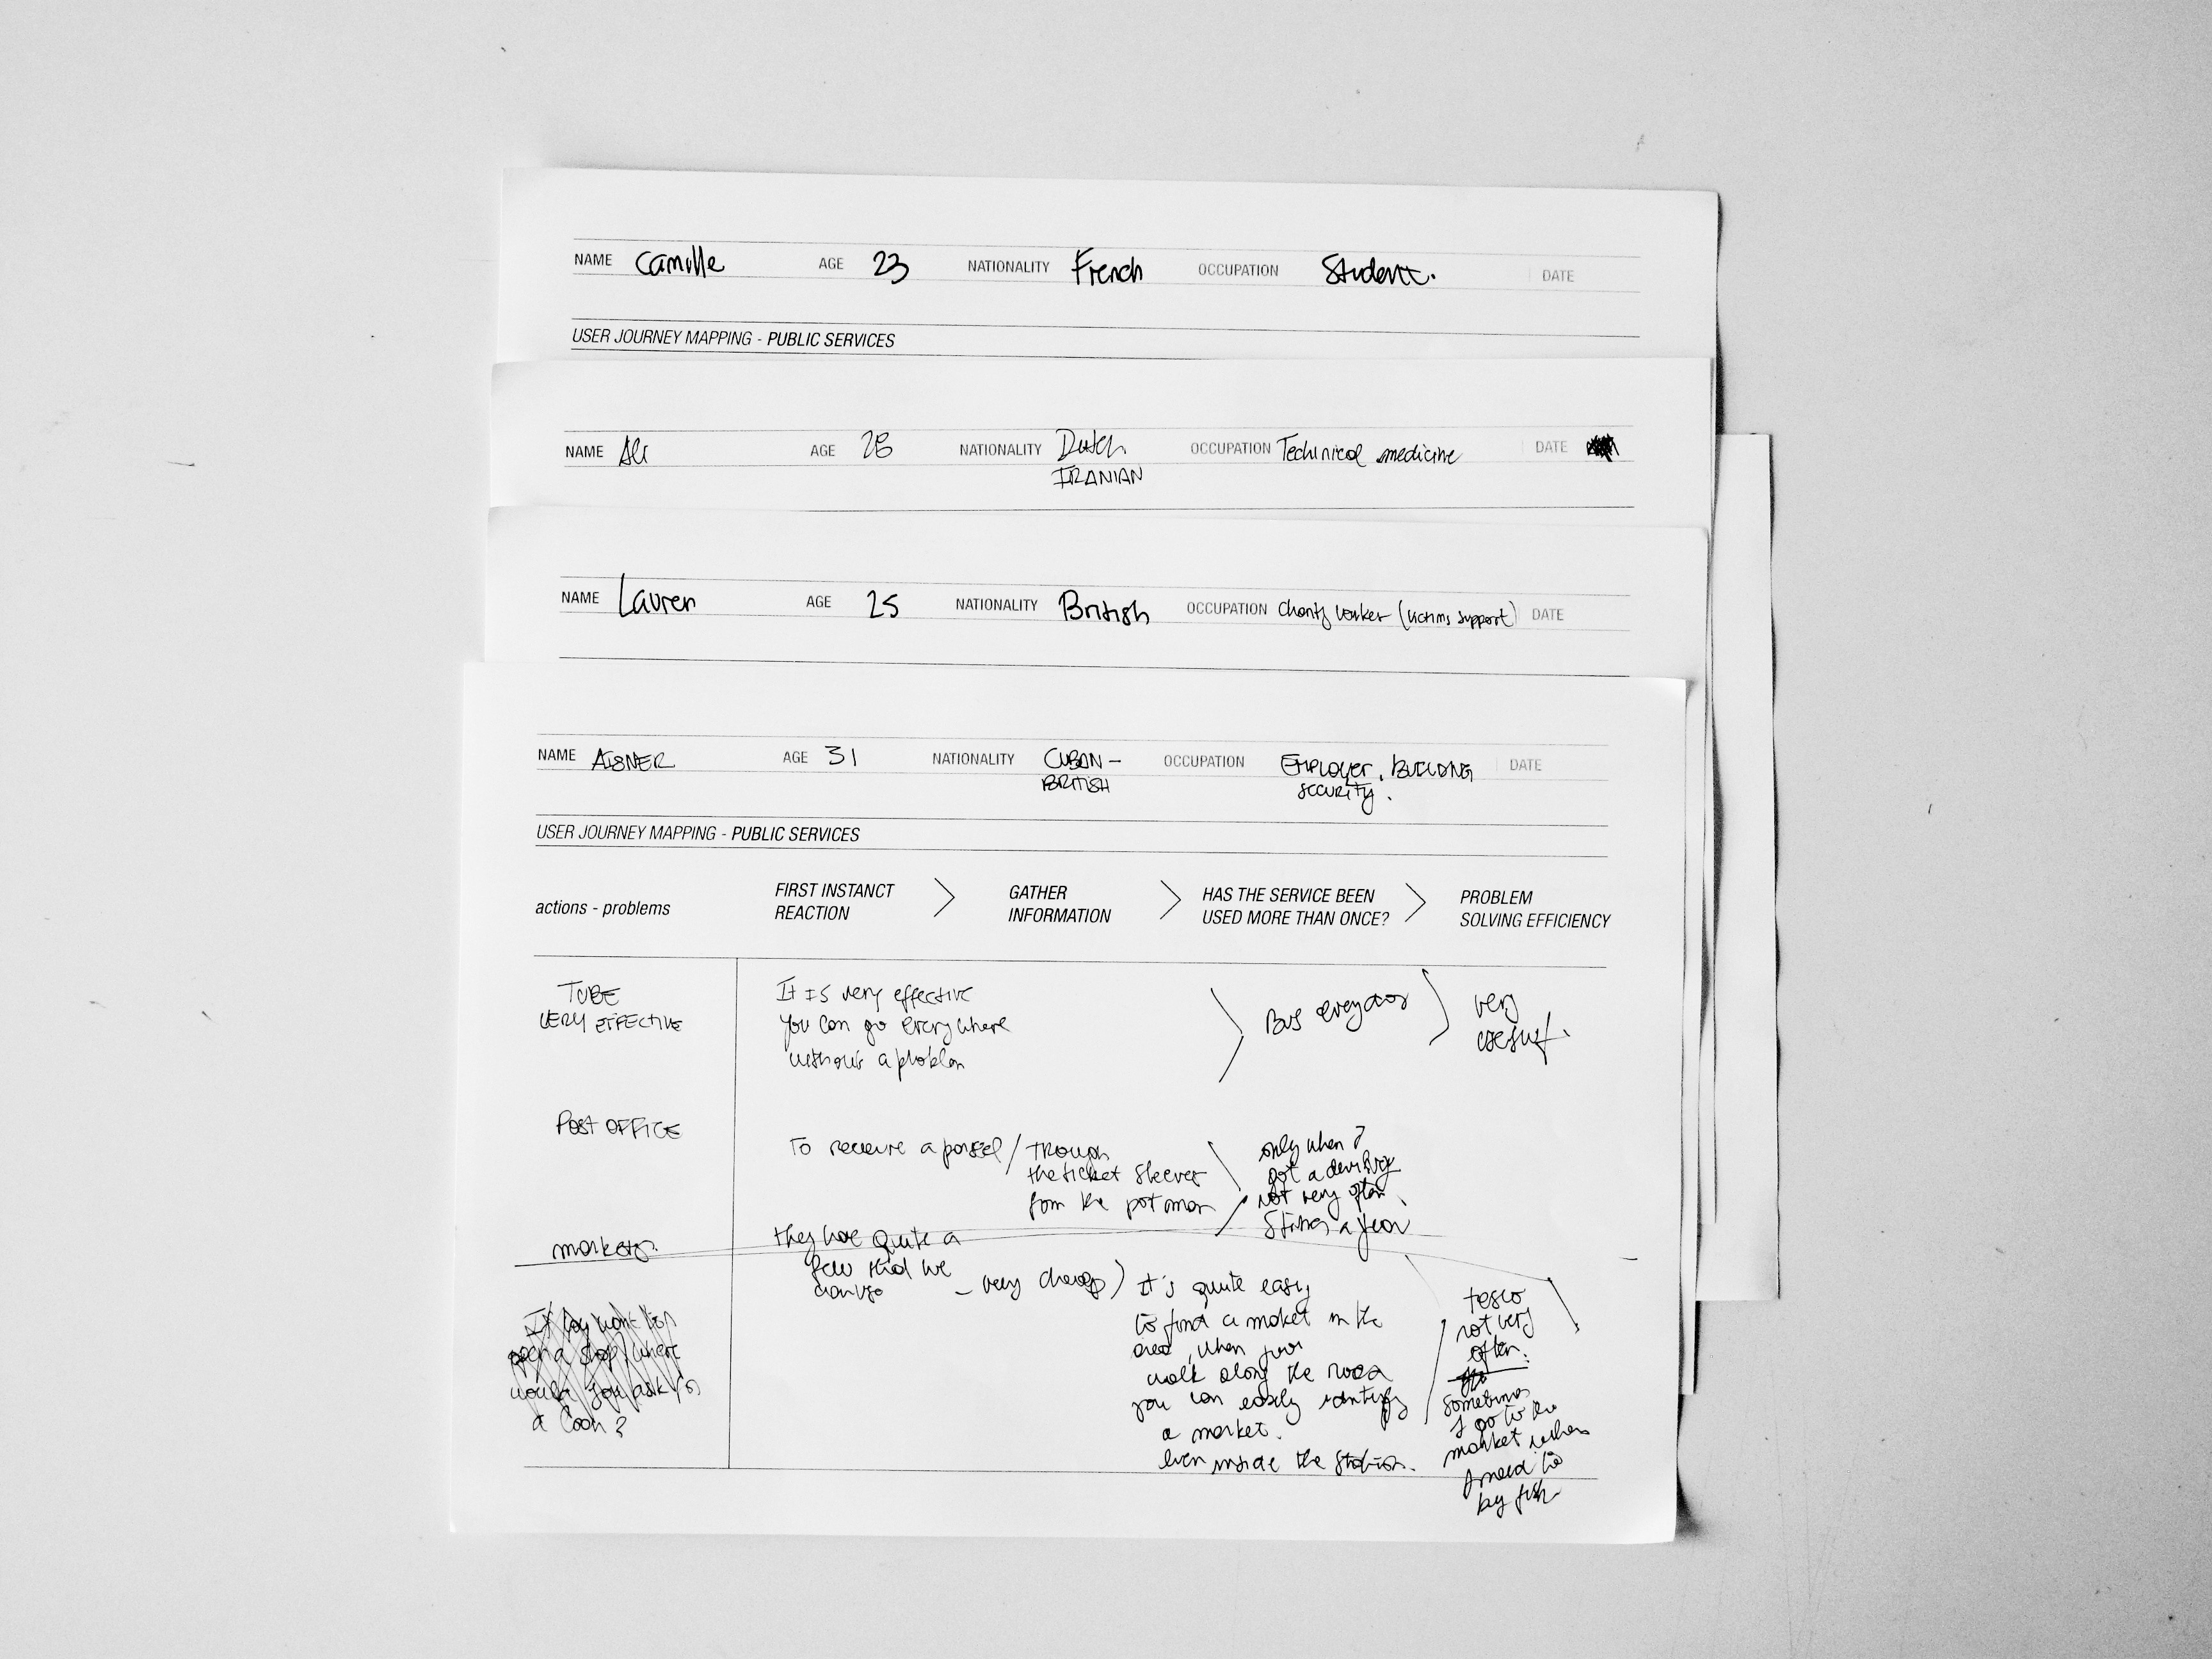 NAME Camille AGE 23 NATIONALITY French OCCUPATION Student. DATE
USER JOURNEY MAPPING - PUBLIC SERVICES
NAME Ali AGE NATIONALITY Dutch OCCUPATION Techinical medicine DATE
IRANIAN
NAME Lauren AGE 25 NATIONALITY British OCCUPATION Charity worker (victims support) DATE
NAME AISNER AGE 31 NATIONALITY CUBAN - OCCUPATION EMPLOYER, BUILDING DATE
BRITISH SECURITY.
USER JOURNEY MAPPING - PUBLIC SERVICES
actions - problems
FIRST INSTANCT
REACTION
GATHER
INFORMATION
HAS THE SERVICE BEEN
USED MORE THAN ONCE?
PROBLEM
SOLVING EFFICIENCY
TUBE
VERY EFFECTIVE
It is very effective
you can go everywhere
without a problem
Bus everyday
very
useful.
POST OFFICE
To receive a parcel /
trough
the ticket
from the
only when I
got a
not very often
5 times a year
markets.
they have quite a
few that we
can use
- very cheap)
it's quite easy
to find a market in the
area, when you
walk along the road
you can easly identify
a market.
even inside the station.
tesco
not very
often.
sometimes
I go to the
market when
I need to
by fish
If you want to
open a shop / where
would you ask for
a